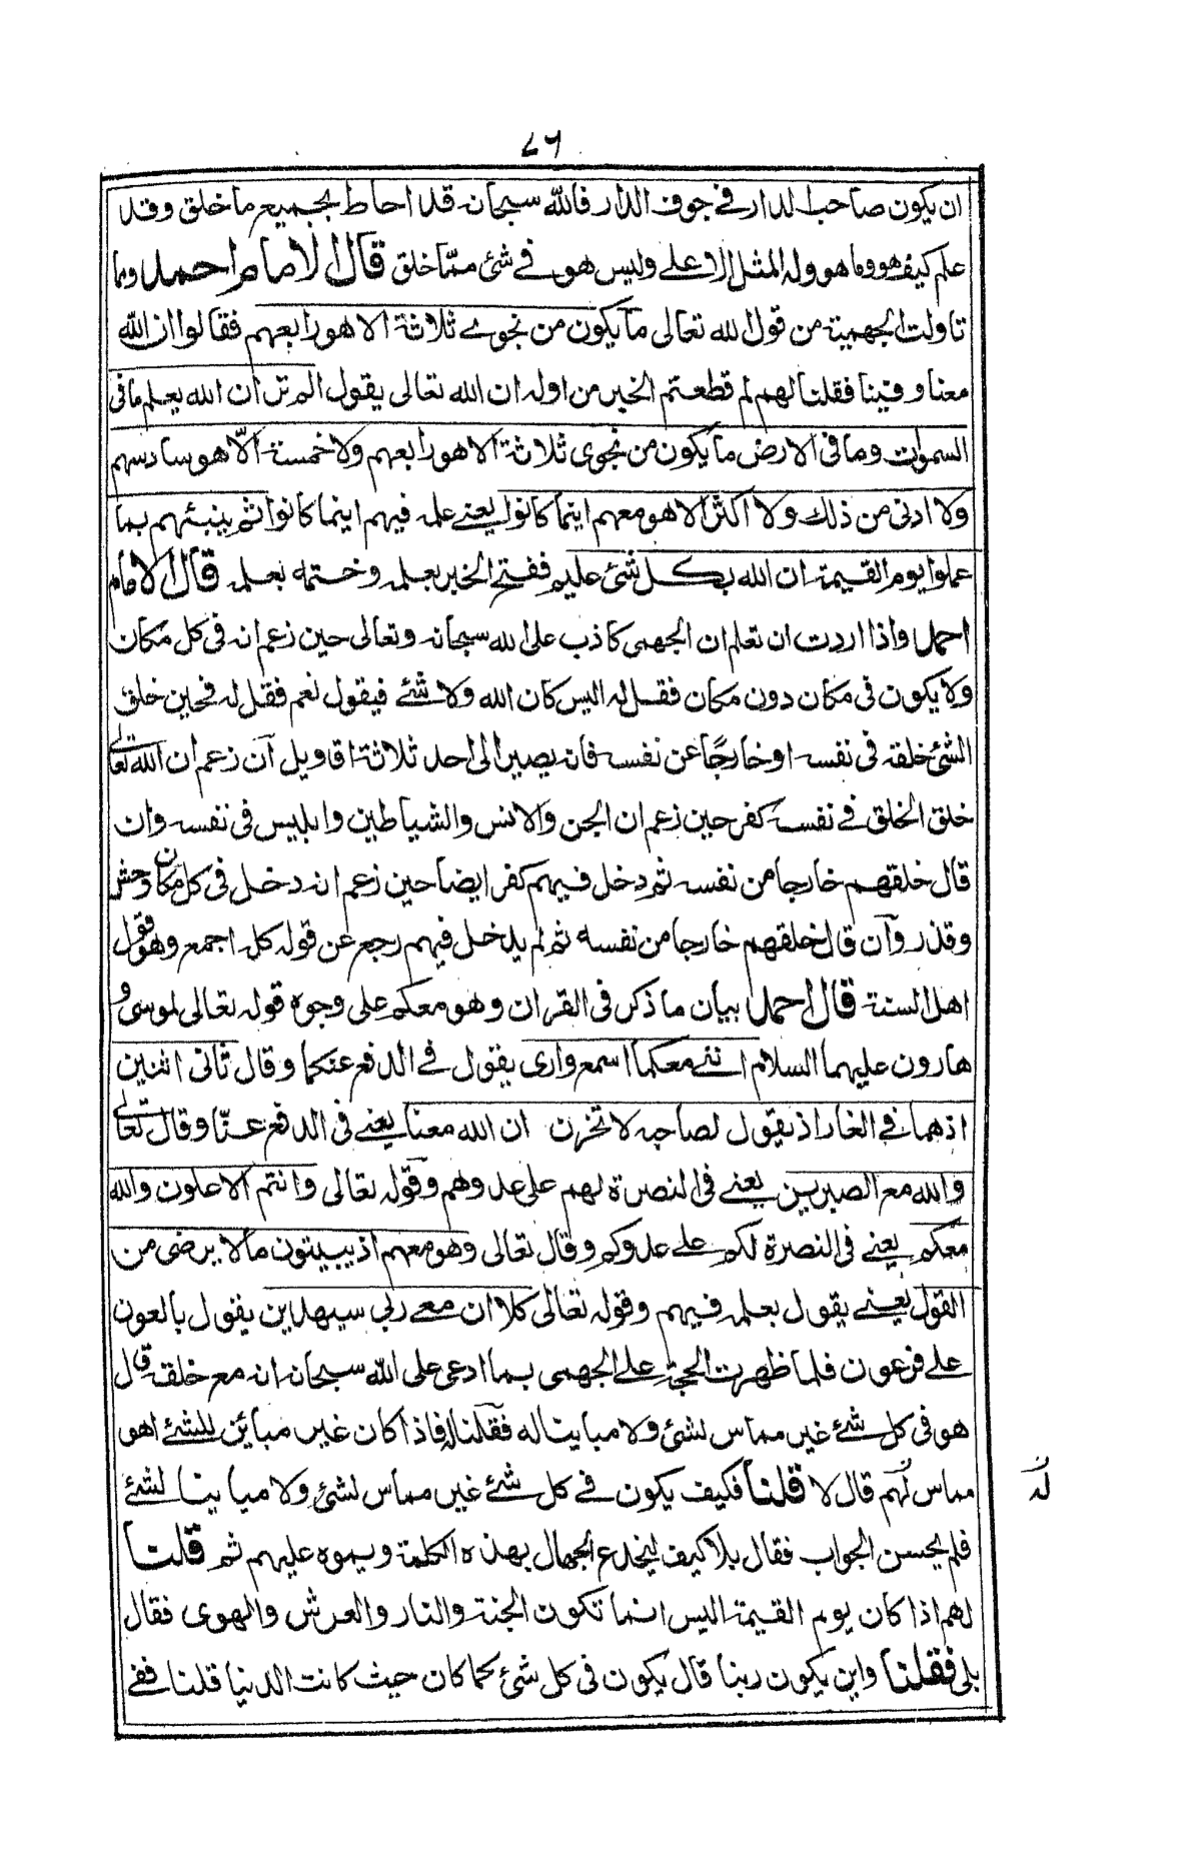 ٧٦
ان يكون صاحب الدار في جوف الدار فالله سبحانه قد احاط بجميع ما خلق وقد
علم كيف هو وما هو وله المثل الاعلى وليس هو في شئ مما خلق قال الامام احمد ومما
تاولت الجهمية من قول الله تعالى ما يكون من نجوى ثلاثة الا هو رابعهم فقالوا ان الله
معنا وفينا فقلنا لهم لم قطعتم الخبر من اوله ان الله تعالى يقول الم تر ان الله يعلم ما فى
السموات وما فى الارض ما يكون من نجوى ثلاثة الا هو رابعهم ولا خمسة الّا هو سادسهم
ولا ادنى من ذلك ولا اكثر الا هو معهم اينما كانوا يعنى علمه فيهم اينما كانوا ثم ينبئهم بما
عملوا يوم القيمة ان الله بكل شئ عليم ففتح الخبر بعلمه وختمه بعلمه قال الامام
احمد واذا اردت ان تعلم ان الجهمى كاذب على الله سبحانه وتعالى حين زعم انه فى كل مكان
ولا يكون فى مكان دون مكان فقل له اليس كان الله ولا شئ فيقول نعم فقل له فحين خلق
الشئ خلقه فى نفسه او خارجًا عن نفسه فانه يصير الى احد ثلاثة اقاويل ان زعم ان الله تعالى
خلق الخلق فى نفسه كفر حين زعم ان الجن والانس والشياطين وابليس فى نفسه وان
قال خلقهم خارجا من نفسه ثم دخل فيهم كفر ايضا حين زعم انه دخل فى كل مكان وحش
وقذر وان قال خلقهم خارجا من نفسه ثم لم يدخل فيهم رجع عن قوله كله اجمع وهو قول
اهل السنة قال احمد بيان ما ذكر فى القران وهو معكم على وجوه قوله تعالى لموسى و
هارون عليهما السلام اننى معكما اسمع وارى يقول فى الدفع عنكما وقال ثانى اثنين
اذ هما فى الغار اذ يقول لصاحبه لا تحزن ان الله معنا يعنى فى الدفع عنّا وقال تعالى
والله مع الصبرين يعنى فى النصرة لهم على عدوهم وقوله تعالى وانتم الاعلون والله
معكم يعنى فى النصرة لكم على عدوكم وقال تعالى وهو معهم اذ يبيتون ما لا يرضى من
القول يعنى يقول بعلمه فيهم وقوله تعالى كلا ان معى ربى سيهدين يقول بالعون
على فرعون فلما ظهرت الحجة على الجهمى بما ادعى على الله سبحانه انه مع خلقه قال
هو فى كل شئ غير مماس لشئ ولا مباينا له فقلنا له فاذا كان غير مباين للشئ اهو
مماس لهم قال لا قلنا فكيف يكون فى كل شئ غير مماس لشئ ولا مباينا لشئ
لهٗ
فلم يحسن الجواب فقال بلا كيف ليخدع الجهال بهذه الكلمة ويموه عليهم ثم قلنا
لهم اذا كان يوم القيمة اليس انما تكون الجنة والنار والعرش والهوى فقال
بلى فقلنا واين يكون ربنا قال يكون فى كل شئ كما كان حيث كانت الدنيا قلنا ففى